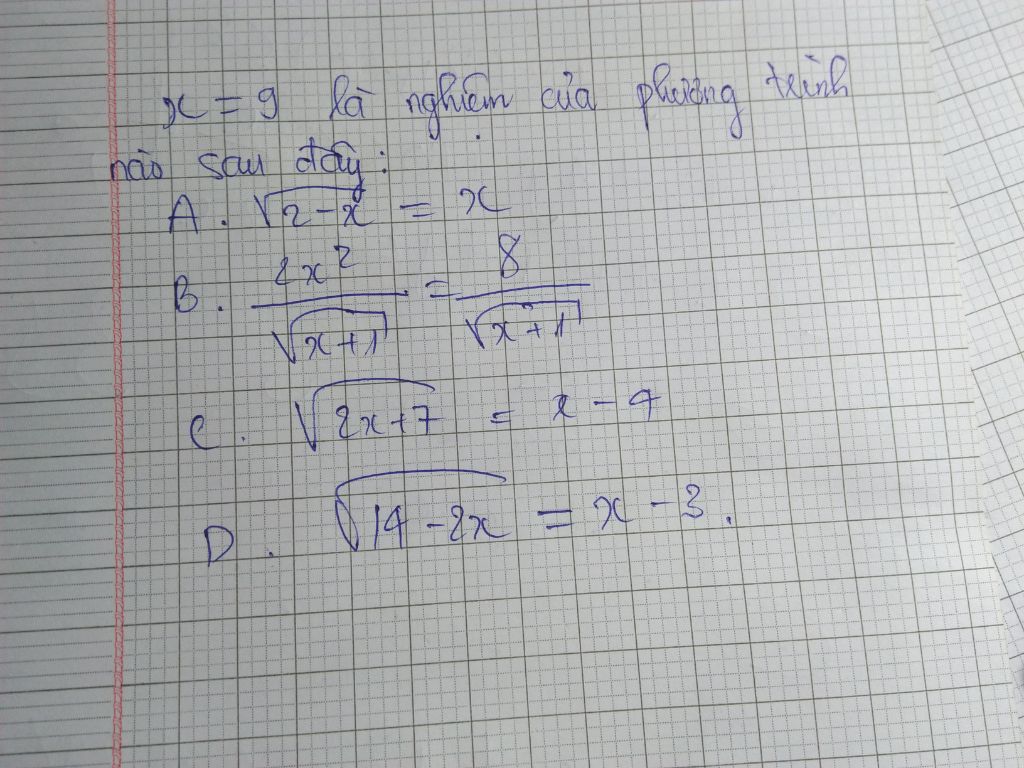 x = 9 là nghiệm của phương trình
nào sau đây:
A. √(2-x) = x
B. 2x²/√(x+1) = 8/√(x+1)
C. √(2x+7) = x-4
D. √(14-2x) = x-3.